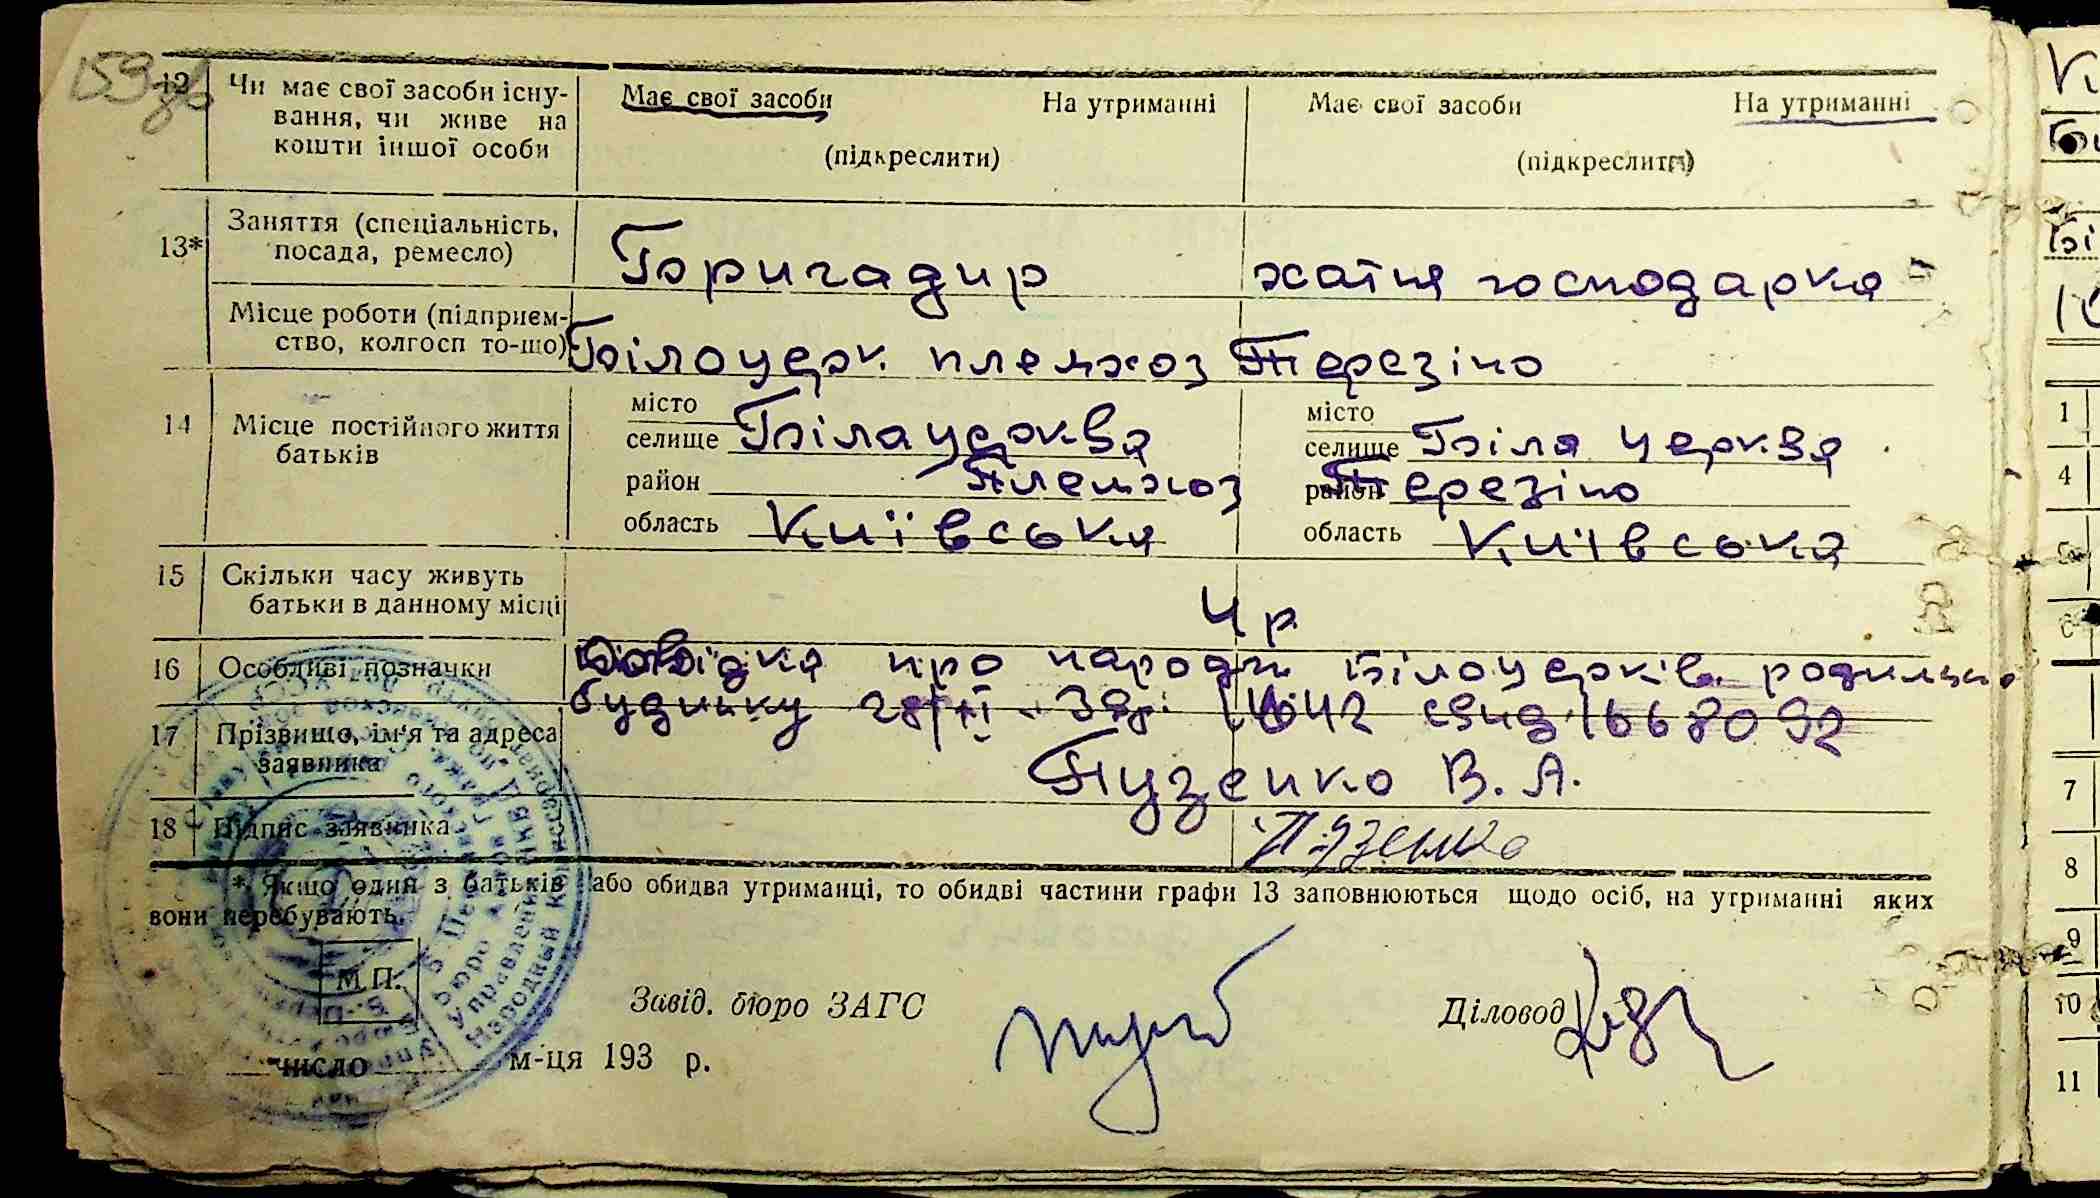 159зв
12 Чи має свої засоби існу- Має свої засоби На утриманні Має свої засоби На утриманні
вання, чи живе на
кошти іншої особи (підкреслити) (підкреслити)
13* Заняття (спеціальність,
посада, ремесло) Бригадир хатня господарка
Місце роботи (підприєм-
ство, колгосп то-що) Білоцерк. племхоз Терезіно
14 Місце постійного життя
батьків
місто місто
селище Біла церква селище Біля церква
район Племхоз район Терезіно
область Київська область Київська
15 Скільки часу живуть
батьки в данному місці 4 р
16 Особливі позначки Довідка про народж Білоцерків. родильн.
будинку 28/XI - 39р. 1642 свид 1668092
17 Прізвищо, ім'я та адреса
заявника Пузенко В. А.
18 Підпис заявника Пузенко
* Якщо один з батьків або обидва утриманці, то обидві частини графи 13 заповнюються щодо осіб, на утриманні яких
вони перебувають.
М.П.
Завід. бюро ЗАГС Діловод
число м-ця 193 р.
1
4
5
6
7
8
9
10
11